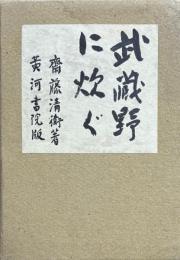 武蔵野
に炊ぐ
齋藤清衛著
黄河書院版